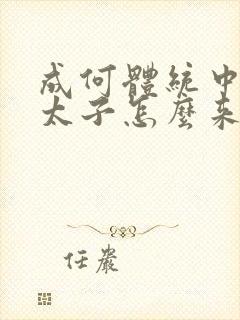 成何體統中
太子怎麼來
任嚴